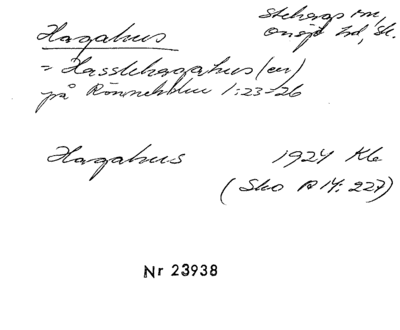 Hagahus
Stehags sn,
Onsjö hd, Sk.
= Hasslehagahus(en)
på Rönneholm 1:23-26
Hagahus 1924 Kb
(Sko A 14: 227)
Nr 23938